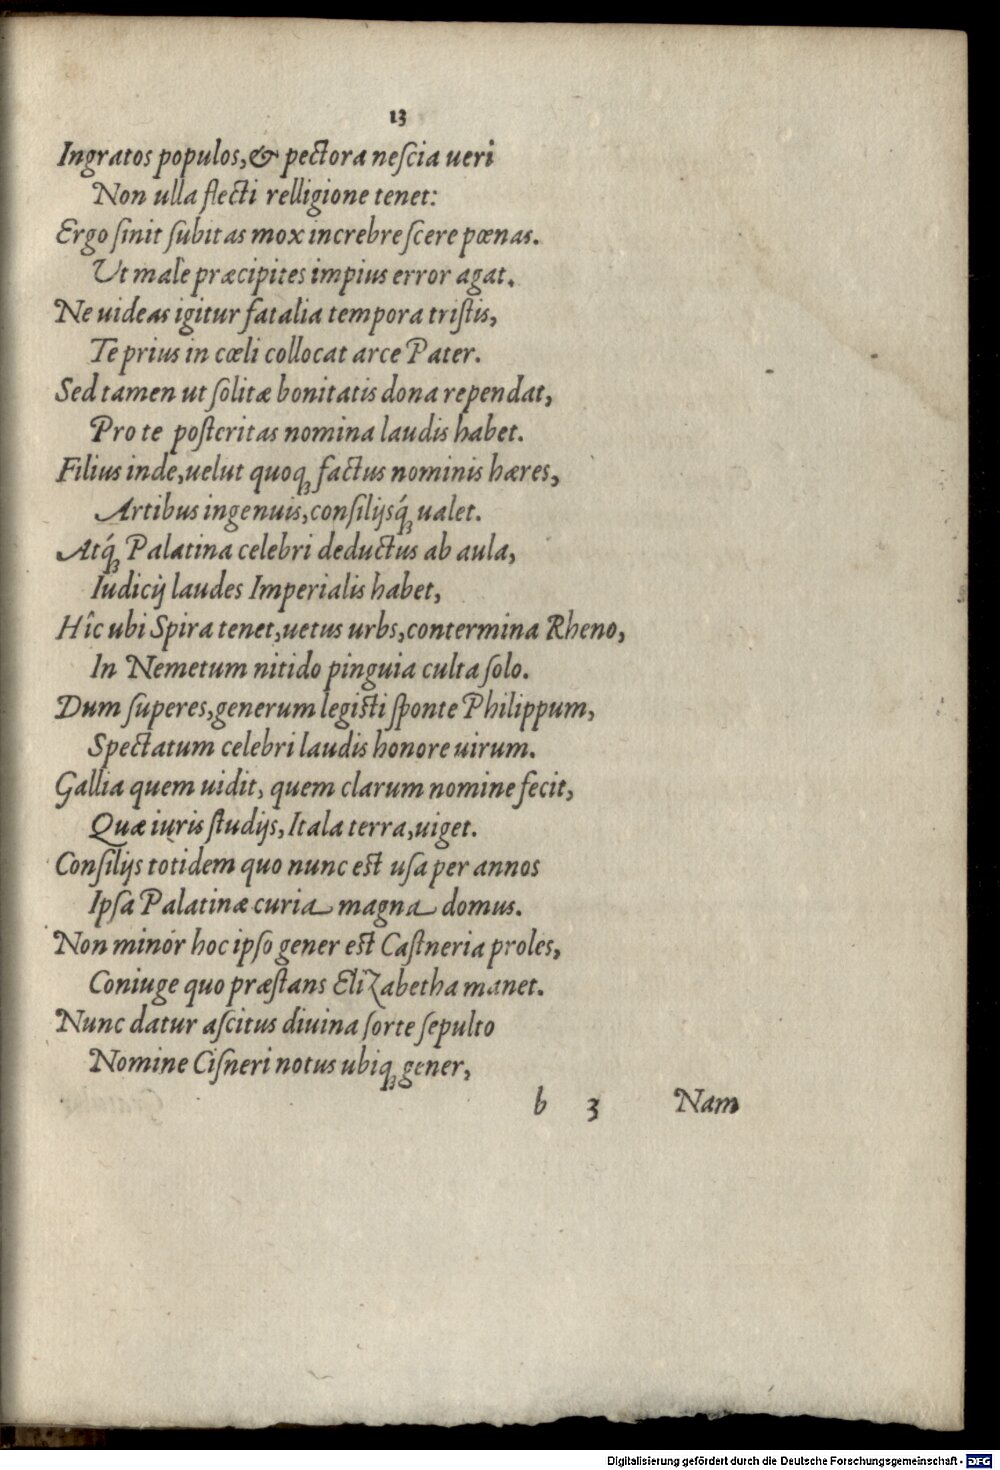 13
Ingratos populos, & pectora nescia ueri
Non ulla flecti relligione tenet:
Ergo sinit subitas mox increbrescere pœnas.
Ut male præcipites impius error agat.
Ne uideas igitur fatalia tempora tristis,
Te prius in cœli collocat arce Pater.
Sed tamen ut solitæ bonitatis dona rependat,
Pro te posteritas nomina laudis habet.
Filius inde, uelut quoq; factus nominis hæres,
Artibus ingenuis, consilijsq́; ualet.
Atq́; Palatina celebri deductus ab aula,
Iudicij laudes Imperialis habet,
Hîc ubi Spira tenet, uetus urbs, contermina Rheno,
In Nemetum nitido pinguia culta solo.
Dum superes, generum legisti sponte Philippum,
Spectatum celebri laudis honore uirum.
Gallia quem uidit, quem clarum nomine fecit,
Quæ iuris studijs, Itala terra, uiget.
Consilijs totidem quo nunc est usa per annos
Ipsa Palatinæ curia magna domus.
Non minor hoc ipso gener est Castneria proles,
Coniuge quo præstans Elizabetha manet.
Nunc datur ascitus diuina sorte sepulto
Nomine Cisneri notus ubiq; gener,
b 3 Nam
Digitalisierung gefördert durch die Deutsche Forschungsgemeinschaft - DFG